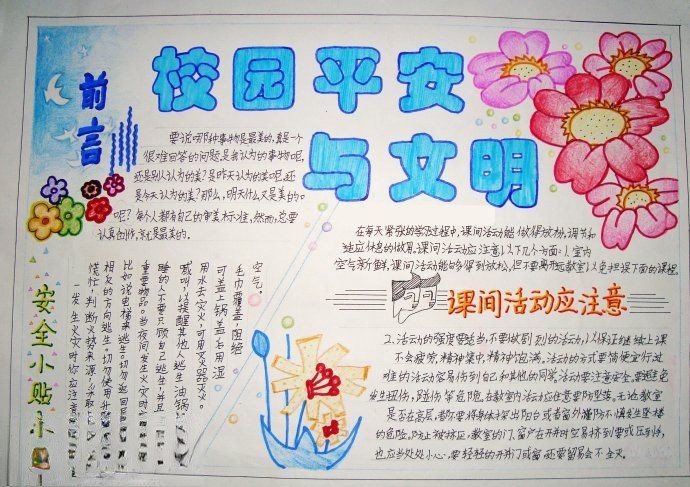 校园平安
与文明
前言
要说哪种事物是最美的，真是一个
很难回答的问题，是我认为的事物呢，
还是别人认为的美？是昨天认为的美呢，还
是今天认为的美？那么，明天什么又是美的。
呢？每个人都有自己的审美标准，然而，总要
认真创作，就是最美的。
在每天紧张的学习过程中，课间活动能做得放松，调节和
适应休息的做用。课间活动应注意以下几个方面：1、室内
空气新鲜，课间活动能够得到放松，但不要离开远教室，以免担误下面的课程。
课间活动应注意
2、活动的强度要适当，不要做剧烈的活动，以保证继续上课
不会疲劳，精神集中，精神饱满。活动的方式要简便宜行，过
难的活动容易伤到自己和其他的同学。活动要注意安全，要避免
发生扭伤，碰伤等危险。在教室内活动应注意要防坠落，无论教室
是否在高层，都不要将身体探出阳台或者窗外，谨防不慎发生坠楼
的危险。防止被挤压，教室的门、窗户在开并时容易挤到手或压到手，
也应当处处小心，要轻轻的开并门或窗，还要留易会不会夹。
安全小贴士
一发生火灾时你应注意
慌忙，判断火势来源，采取
相反的方向逃生。切勿使用升
比如说电梯来逃生。切勿返回
重要物品。当夜间发生火灾时
睡的人，不要只顾自己逃生，并且
喊叫，以提醒其他人逃生油锅
用水去灭火，可用灭火器灭火。
可盖上锅盖，占用湿
毛巾覆盖，阻绝
空气。